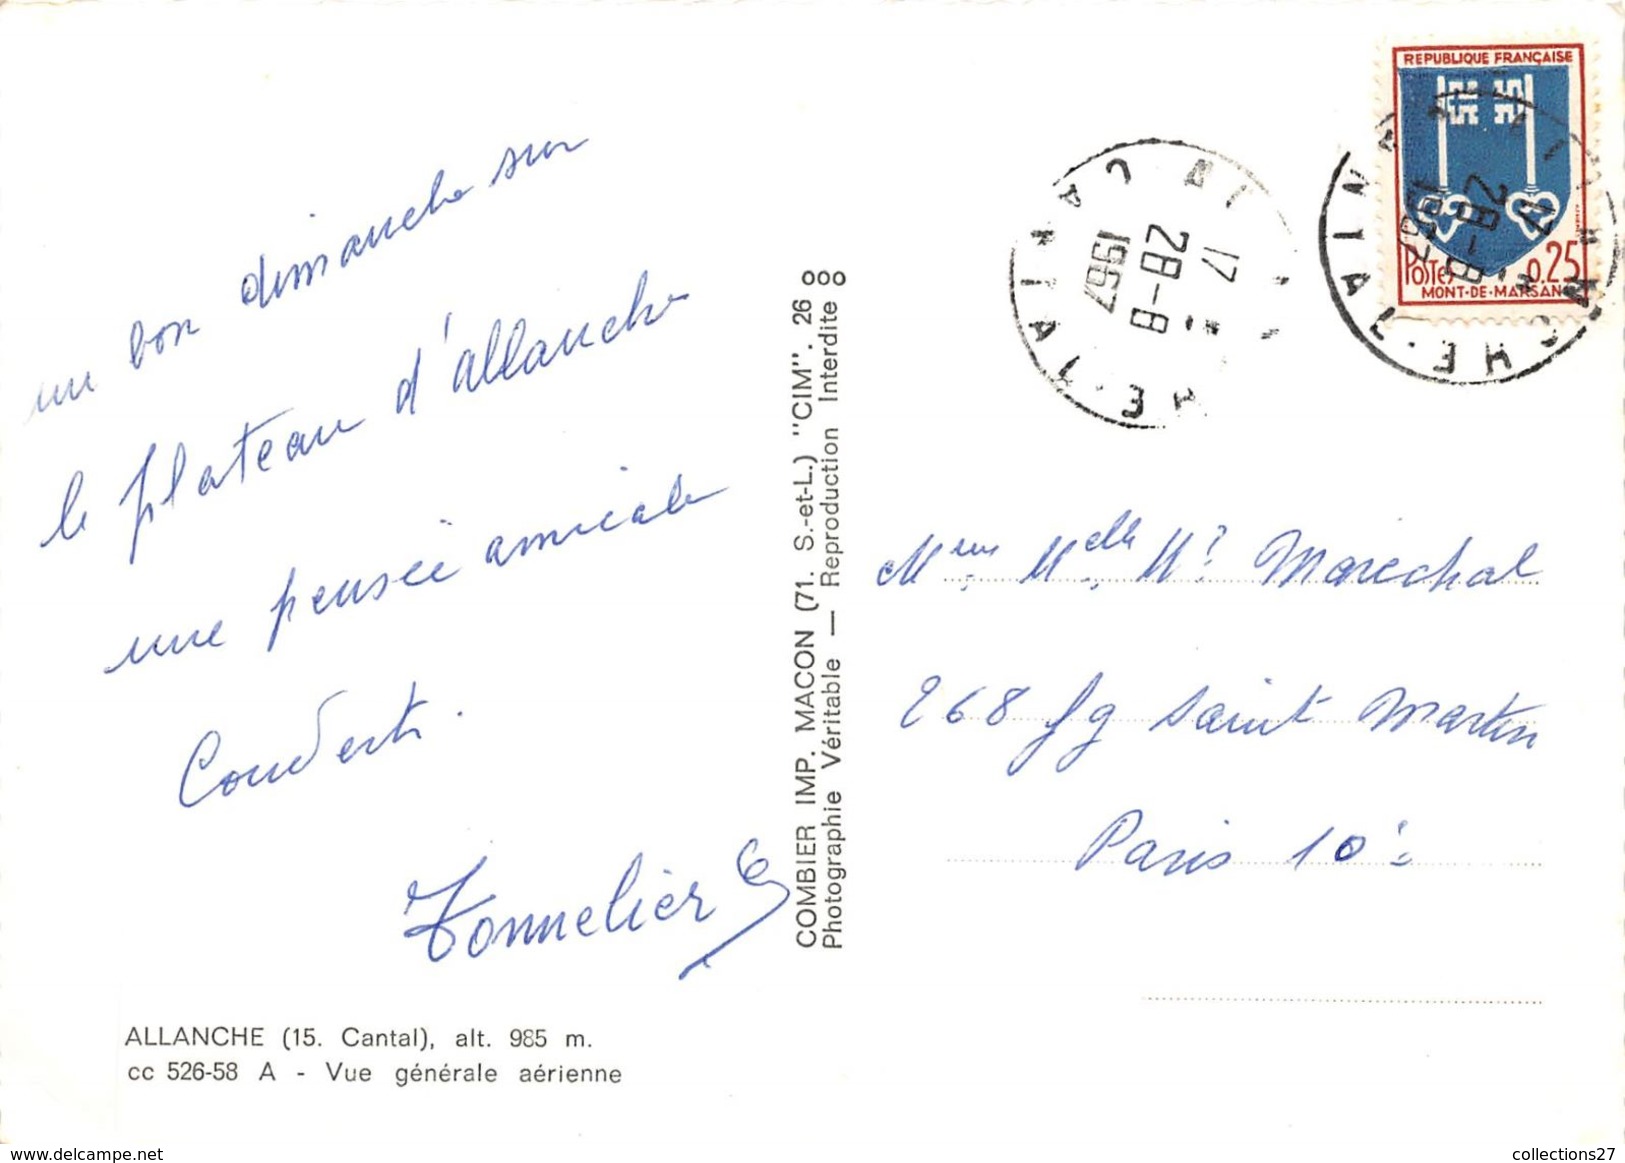 un bon dimanche sur
le plateau d'allanche
une pensée amicale
Couderts.
Tonnelier G
ALLANCHE (15. Cantal), alt. 985 m.
cc 526-58 A - Vue générale aérienne
COMBIER IMP. MACON (71. S.-et-L.) "CIM". 26
Photographie Véritable — Reproduction Interdite
REPUBLIQUE FRANÇAISE
POSTES 0,25
MONT-DE-MARSAN
17 H
28-8
1967
CANTAL
17 H
28-8
1967
Melle Mr Marechal
268 fg Saint Martin
Paris 10è
www.delcampe.net
collections27